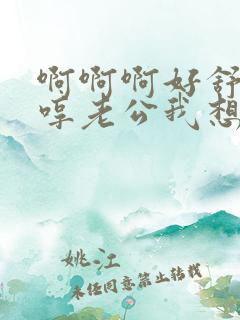 啊啊啊好舒
哼老公我想
姚江
未经同意禁止转载